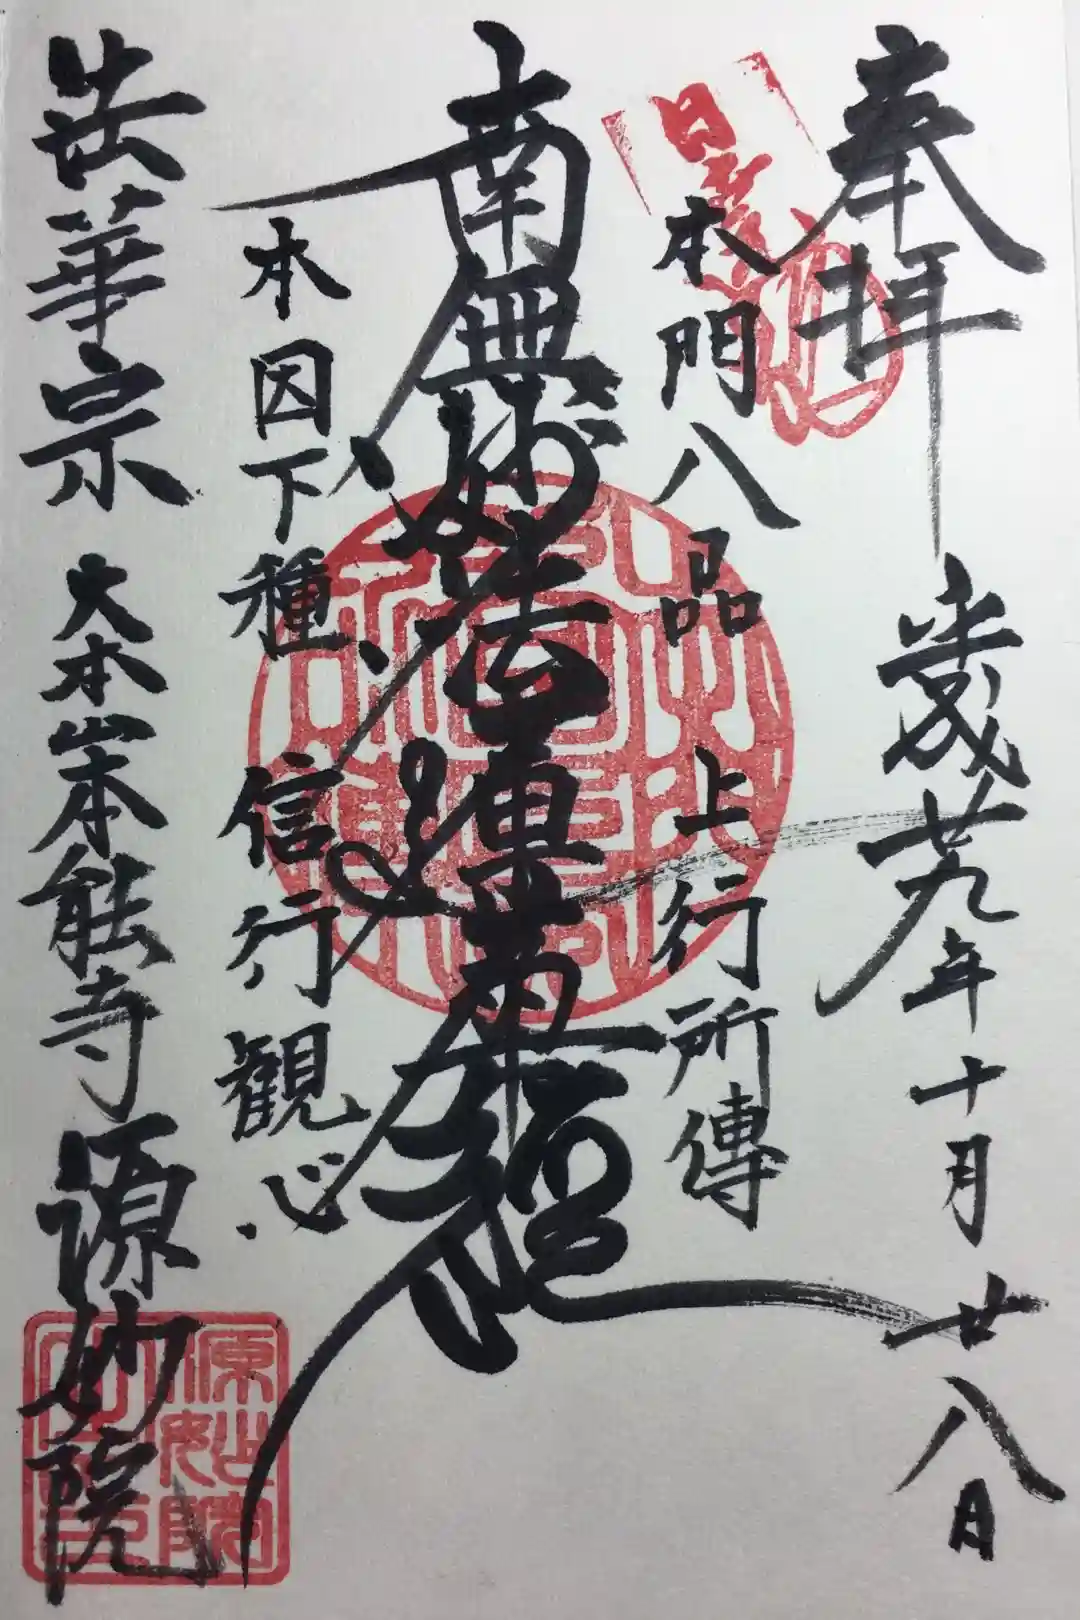 奉拝
歳廿九年十月廿八日
本門八品上行所傳
南無妙法蓮華経
本因下種信行観心
法華宗大本山本能寺源妙院